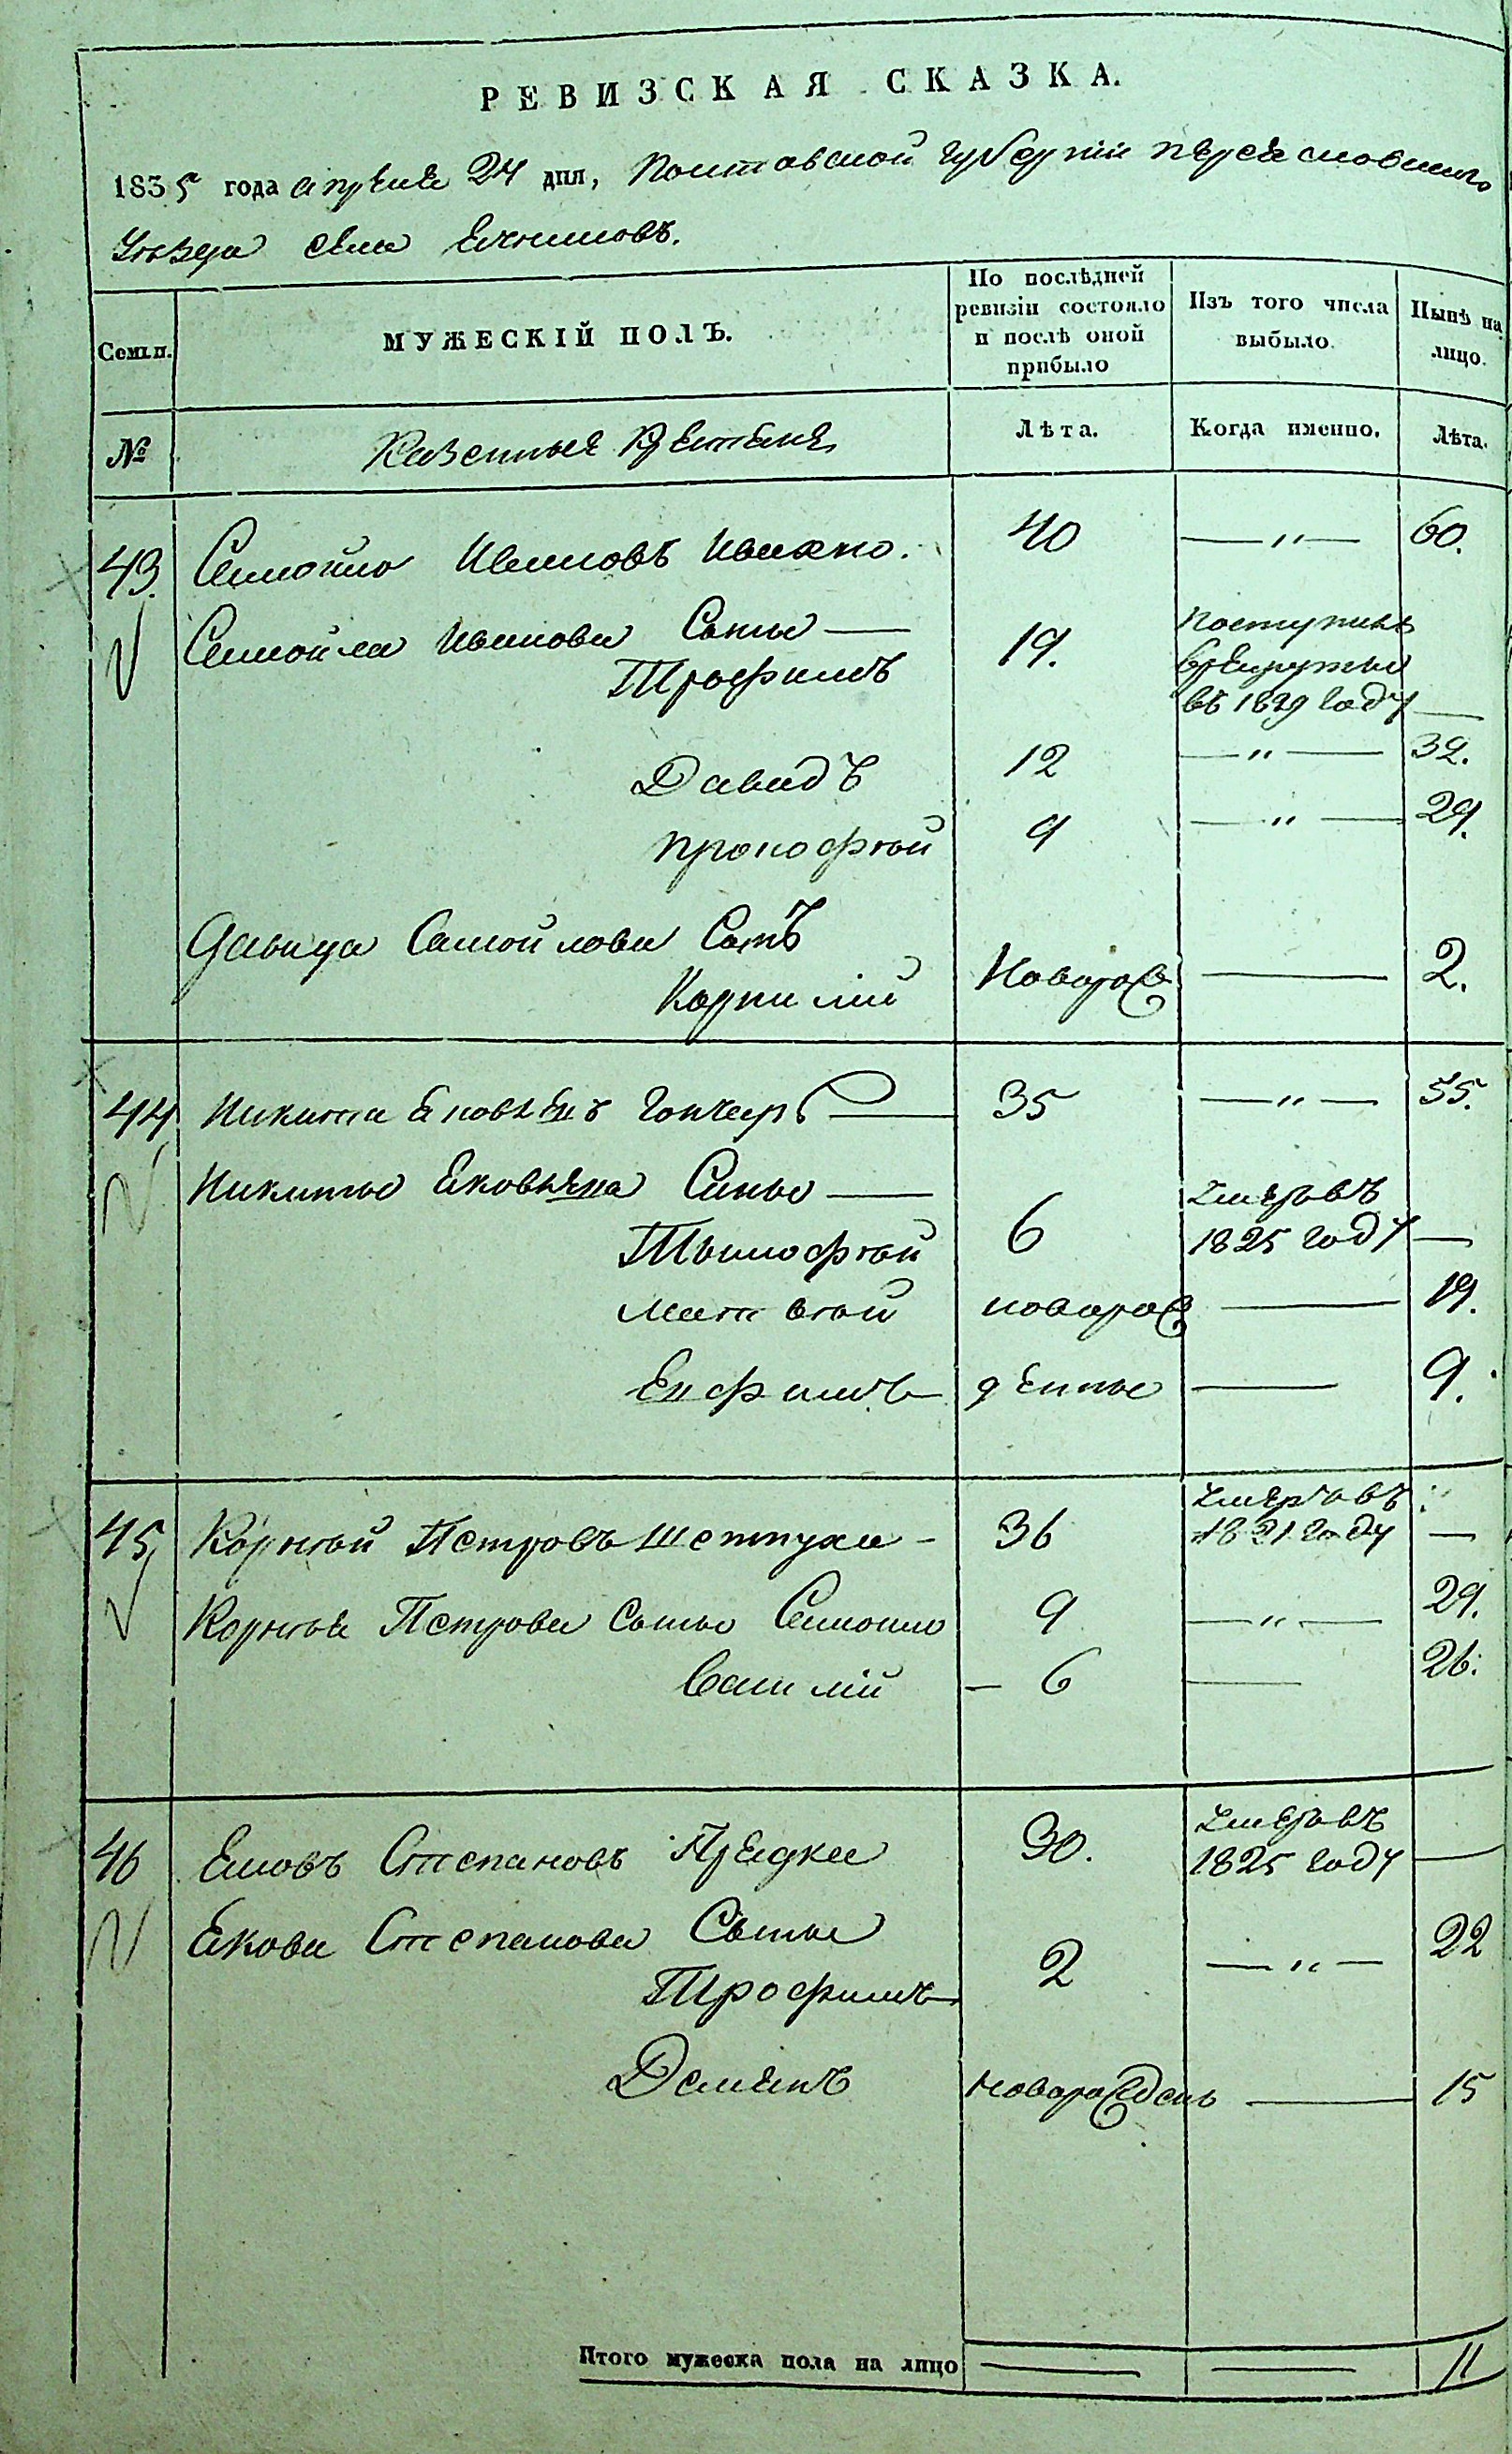 РЕВИЗСКАЯ СКАЗКА.
1835 года апреля 24 дня, Полтавской губернии переяславского
уѣзда села
По послѣдней ревизіи состояло и послѣ оной прибыло
Изъ того числа выбыло.
Нынѣ на лицо.
Семьи.
МУЖЕСКІЙ ПОЛЪ.
№ Казенные Крестяне Лѣта. Когда именно. Лѣта.
43. Самойло Ивановъ Ивахно. 40 — „ — 60.
Самойла Иванова Сыны — Поступилъ
Трофимъ 19. врекруты
въ 1829 году —
Давидъ 12 — „ — 32.
Прокофій 9 — „ — 29.
Давида Самойлова Сынъ
Корнилій Новорож — 2.
44 Никита Яковлевъ Гончаръ — 35 — „ — 55.
Никиты Яковлева Сыны — Умеръ въ
Тымофей 6 1825 году —
Матвей новорож — 19.
Ефимъ денные — 9.
45, Корней Петровъ Шептуха - 36 Умеръ въ 1821 году —
Корнея Петрова Сыны Самойло 9 — „ — 29.
Василій — 6 — 26.
46 Яковъ Степановъ Прядка 30. Умеръ въ 1825 году —
Якова Степанова Сыны
Трофимъ 2 — „ — 22
Демянъ новорожденъ — 15
Итого мужеска пола на лицо — — 11